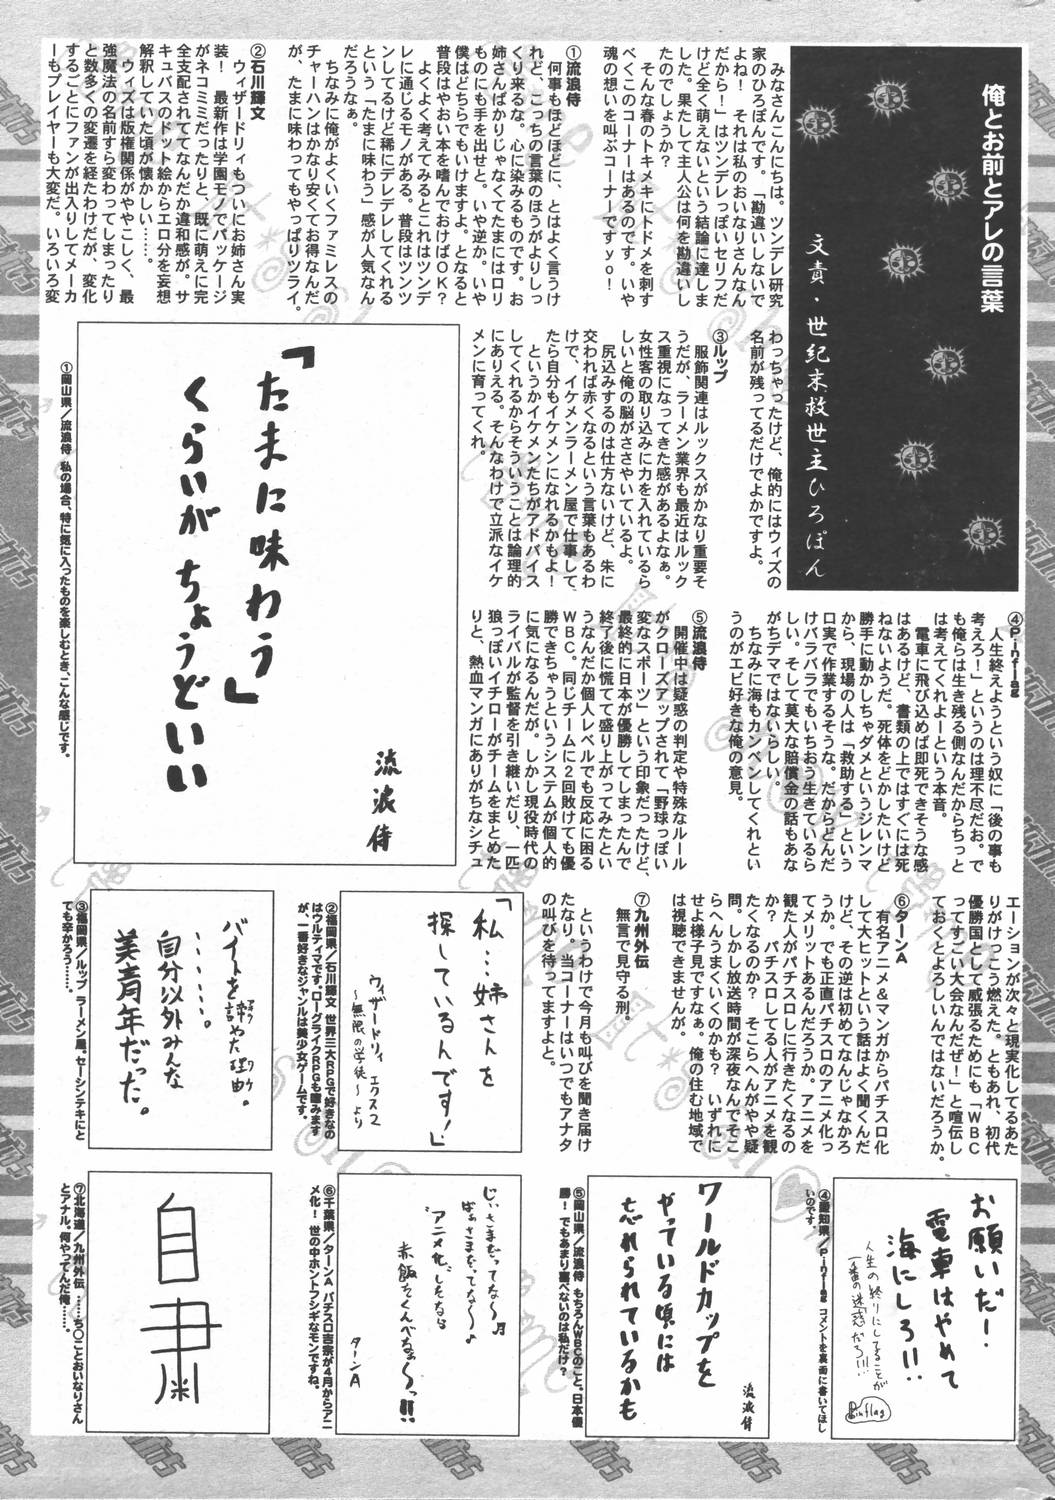 俺とお前とアレの言葉
文責・世紀末救世主ひろぽん
みなさんこんにちは。ツンデレ研究
家のひろぽんです。「勘違いしないで
よね! それは私のおいなりさんなん
だから!」はツンデレっぽいセリフだ
けど全く萌えないという結論に達しま
した。果たして主人公は何を勘違いし
たのでしょうか?
そんな春のトキメキにトドメを刺す
べくこのコーナーはあるのです。いや
魂の想いを叫ぶコーナーですyo!
①流浪侍
何事もほどほどに、とはよく言うけ
れど、こっちの言葉のほうがよりしっ
くり来るな。心に染みるものです。お
姉さんばかりじゃなくてたまにはロリ
ものにも手を出せと。いや逆か。いや
僕はどちらでもいけますよ。となると
普段はやおい本を嗜んでおけばOK?
よくよく考えてみるとこれはツンデ
レに通じるモノがある。普段はツンツ
ンしてるけど稀にデレデレしてくれる
という「たまに味わう」感が人気なん
だろうなぁ。
ちなみに俺がよくいくファミレスの
チャーハンはかなり安くてお得なんだ
が、たまに味わってもやっぱりツライ。
②石川輝文
ウィザードリィもついにお姉さん実
装! 最新作は学園モノでパッケージ
がネコミミだったりと、既に萌えに完
全支配されててなんだか違和感が。サ
キュバスのドット絵からエロ分を妄想
解釈していた頃が懐かしい……。
ウィズは版権関係がややこしく、最
強魔法の名前すら変わってしまったり
と数多くの変遷を経たわけだが、変化
するごとにファンが出入りしてメーカ
ーもプレイヤーも大変だ。いろいろ変
わっちゃったけど、俺的にはウィズの
名前が残ってるだけでよかですよ。
③ルップ
服飾関連はルックスがかなり重要そ
うだが、ラーメン業界も最近はルック
ス重視になってきた感があるよなぁ。
女性客の取り込みに力を入れているら
しいと俺の脳がささやいているよ。
尻込みするのは仕方ないけど、朱に
交われば赤くなるという言葉もあるわ
けで、イケメンラーメン屋で仕事して
たら自分もイケメンになれるかもよ!
というかイケメンたちがアドバイス
してくれるからそういうことは論理的
にありえる。そんなわけで立派なイケ
メンに育ってくれ。
④P.inflag
人生終えようという奴に「後の事も
考えろ!」というのは理不尽だお。で
も俺らは生き残る側なんだからちっと
は考えてくれよーという本音。
電車に飛び込めば即死できそうな感
はあるけど、書類の上ではすぐには死
ねないようだ。死体をどかしたいけど
勝手に動かしちゃダメというジレンマ
から、現場の人は「救助する」という
口実で作業するそうな。だからどんだ
けバラバラでもいちおう生きているら
しい。そして莫大な賠償金の話もあな
がちデマではないらしい。
ちなみに海もカンベンしてくれとい
うのがエビ好きな俺の意見。
⑤流浪侍
開催中は疑惑の判定や特殊なルール
がクローズアップされて「野球っぽい
変なスポーツ」という印象だったけど、
最終的に日本が優勝してしまったんで
終了後に慌てて盛り上がってみたとい
うなんだか個人レベルでも反応に困る
WBC。同じチームに2回敗けても優
勝できちゃうというシステムが個人的
に気になるんだが。しかし現役時代の
ライバルが監督を引き継いだり、一匹
狼っぽいイチローがチームをまとめた
りと、熱血マンガにありがちなシチュ
エーションが次々と現実化してるあた
りがけっこう燃えた。ともあれ、初代
優勝国として威張るためにも「WBC
ってすごい大会なんだぜ!」と喧伝し
ておくとよろしいんではないだろうか。
⑥ターンA
有名アニメ&マンガからパチスロ化
して大ヒットという話はよく聞くんだ
けど、その逆は初めてなんじゃなかろ
うか。でも正直パチスロのアニメ化っ
てメリットあるんだろうか。アニメを
観た人がパチスロしに行きたくなるの
か? パチスロしてる人がアニメを観
たくなるのか? そこらへんがやや疑
問。しかし放送時間が深夜なんでそこ
らへんうまくいくのかも? いずれに
せよ様子見ですなぁ。俺の住む地域で
は視聴できませんが。
⑦九州外伝
無言で見守る刑。
というわけで今月も叫びを聞き届け
たなり。当コーナーはいつでもアナタ
の叫びを待ってますよと。
「たまに味わう」
くらいが ちょうどいい
流浪侍
①岡山県/流浪侍 私の場合、特に気に入ったものを楽しむとき、こんな感じです。
「私……姉さんを
探しているんです!」
ウィザードリィ エクス2
〜無限の学徒〜より
②福岡県/石川輝文 世界三大RPGで好きなの
はウルティマです。ローグライクRPGも嗜みます
が、一番好きなジャンルは美少女ゲームです。
バイトを辞めた理由。
……。
自分以外みんな
美青年だった。
③福岡県/ルップ ラーメン屋。セーシンテキにと
ても辛かろう……
お願いだ!
電車はやめて
海にしろ!!
人生の終りにしてることが
一番の迷惑だろ!!!
P.inflag
④愛知県/P.inflag コメントを裏面に書いてほし
いのです。
ワールドカップを
やっている頃には
忘れられているかも
流浪侍
⑤岡山県/流浪侍 もちろんWBCのこと。日本優
勝! でもあまり喜べないのは私だけ?
じいさまだってな〜♪
ばあさまだってな〜♪
アニメ化しそなら
赤飯たくんべなぁ〜っ!!
ターンA
⑥千葉県/ターンA パチスロ吉宗が4月からアニ
メ化! 世の中ホントフシギなモンですね。
自粛
⑦北海道/九州外伝 ……ち○ことおいなりさん
とアナル。何やってんだ俺……。